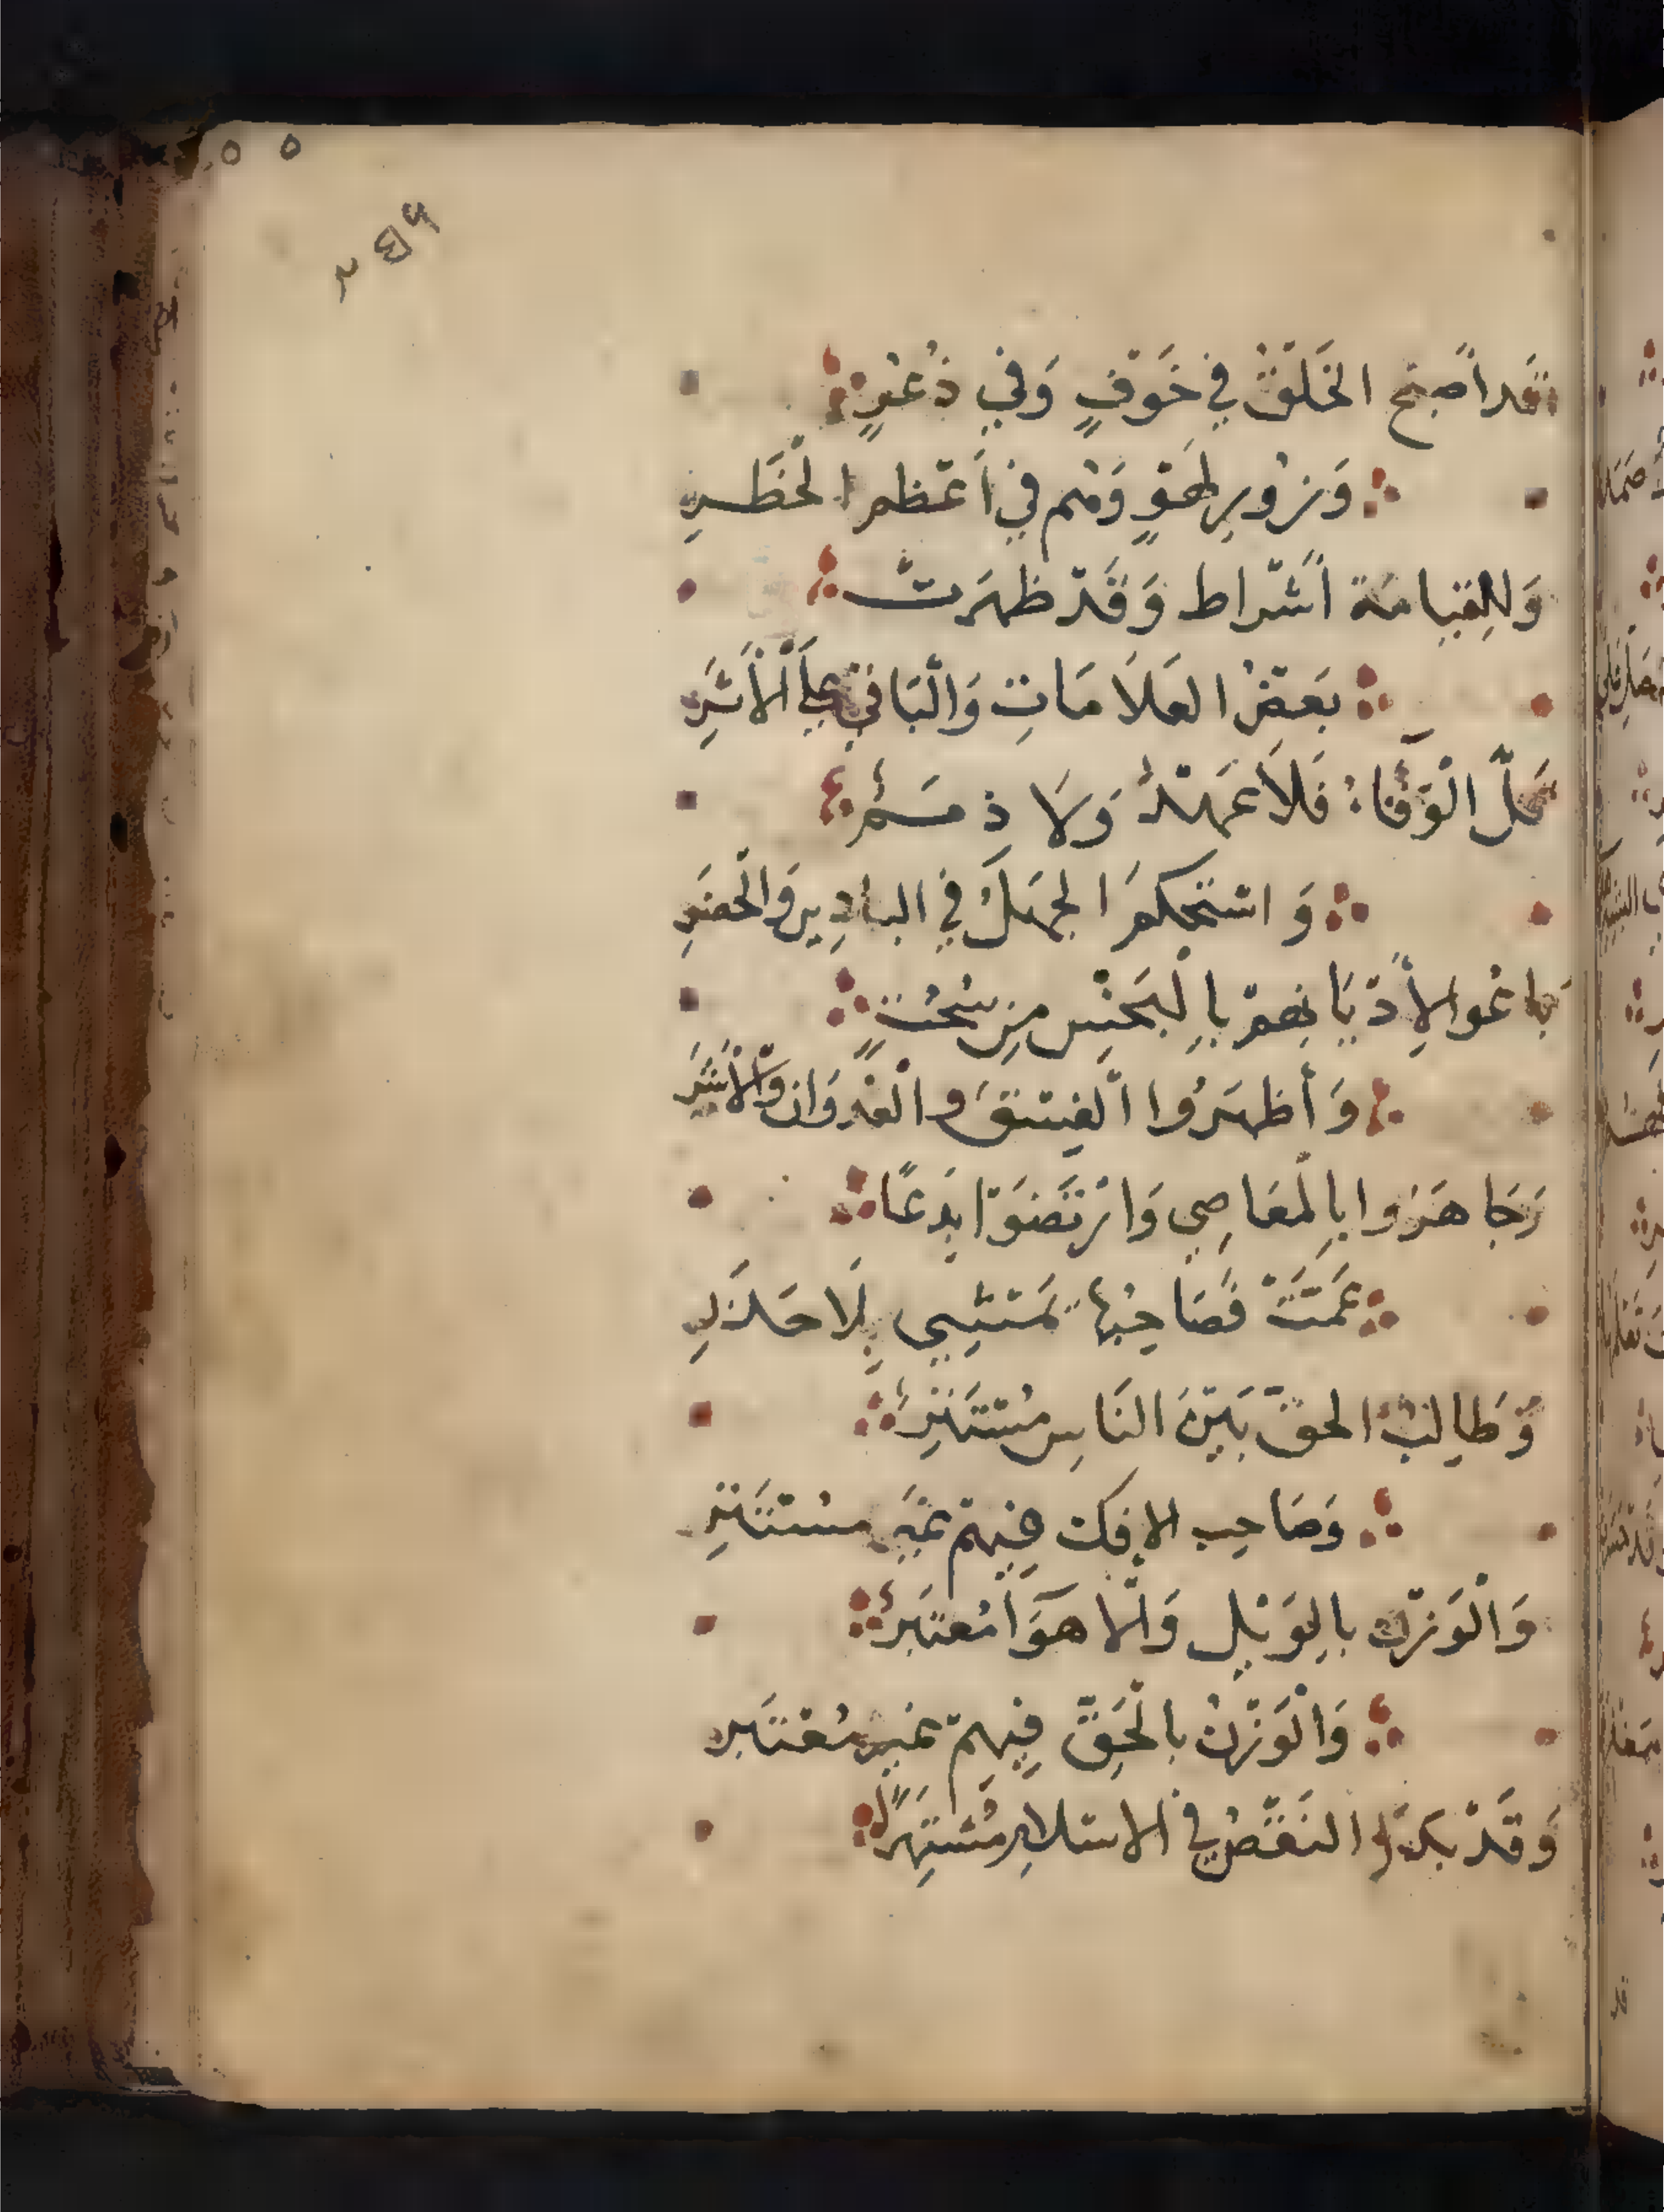 قَد أَصبح الخَلْقُ في خَوْفٍ وَفي ذُعْرٍ
وَزُورِ لَهْوٍ وَهُم في أَعْظم الْخَطَرِ
وَلِلقِيامَة أَشْراط وَقَدْ ظهَرَتْ
بَعضُ العَلَامَاتِ وَالْبَاقي عَلَى الْأَثَرِ
قَلَّ الْوَفَاءُ فَلَا عَهْدٌ وَلَا ذِمَمٌ
وَ اسْتَحْكمَ الجهَلُ في البادِينَ وَالْحضَرِ
بَاعُوا لِأَدْيَانِهِمْ بِالْبَخْسِ مِن سُحُتٍ
وَأَظهَرُوا الْفِسْقَ وَالْعُدْوَانَ وَالْأَشَرَ
وَجَاهَرُوا بِالْمَعَاصِي وَارْتَضَوْا بِدَعًا
عَمَّتْ فَصَاحِبُهَا يَمْشِي بِلَا حَذَرِ
وَطَالِبُ الحقّ بَيْنَ النَاسِ مُسْتَتِرٌ
وَصَاحِب الإفك فِيهِمْ غَيْر مسْتَتِرِ
وَالْوَزْن بالِوَيْلِ وَالْاهوَا مُعْتَبَرٌ
وَالْوَزْنُ بالْحَقّ فِيهِمْ غَير مُعْتَبَرِ
وَقَدْ بَدَا النَقْصُ في الاسْلامِ مُشْتَهِرًا